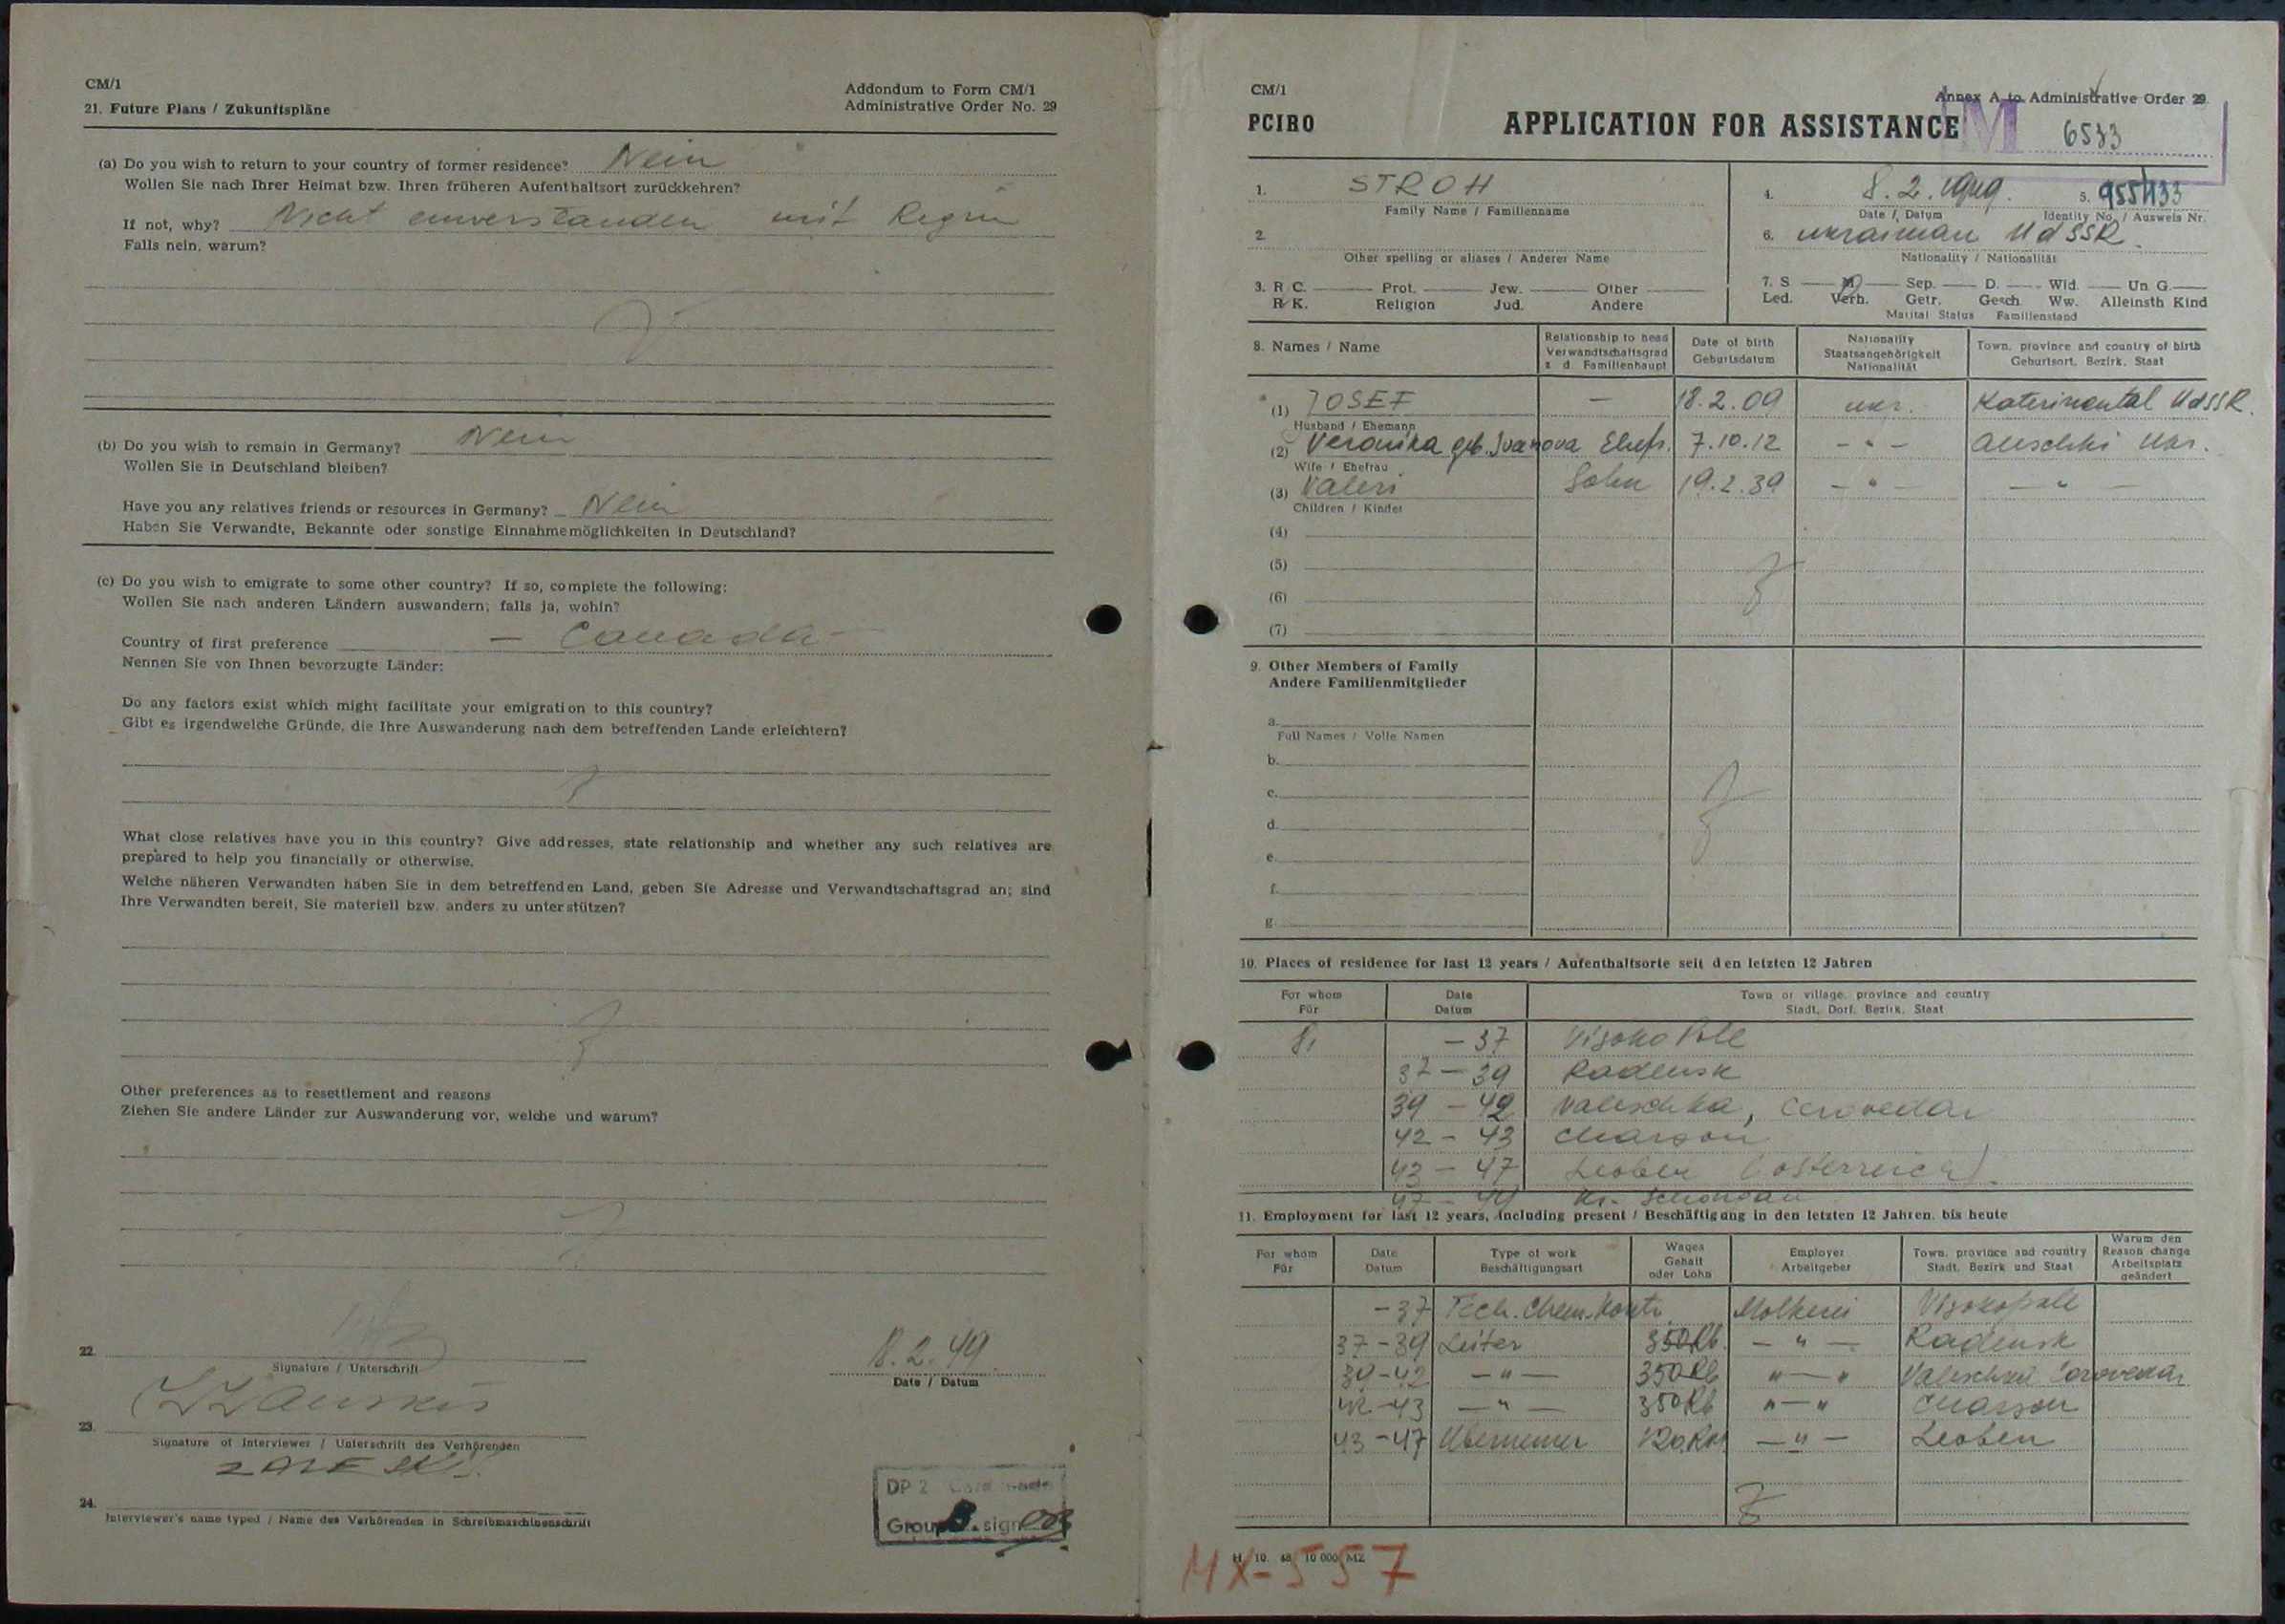 CM/1
Addondum to Form CM/1
21. Future Plans / Zukunftspläne
Administrative Order No. 29
(a) Do you wish to return to your country of former residence? Nein
Wollen Sie nach Ihrer Heimat bzw. Ihren früheren Aufenthaltsort zurückkehren?
If not, why? Nicht einverstanden mit Regim
Falls nein, warum?
(b) Do you wish to remain in Germany? Nein
Wollen Sie in Deutschland bleiben?
Have you any relatives friends or resources in Germany? Nein
Haben Sie Verwandte, Bekannte oder sonstige Einnahmemöglichkeiten in Deutschland?
(c) Do you wish to emigrate to some other country? If so, complete the following:
Wollen Sie nach anderen Ländern auswandern; falls ja, wohin?
Country of first preference — Canada —
Nennen Sie von Ihnen bevorzugte Länder:
Do any factors exist which might facilitate your emigration to this country?
Gibt es irgendwelche Gründe, die Ihre Auswanderung nach dem betreffenden Lande erleichtern?
What close relatives have you in this country? Give addresses, state relationship and whether any such relatives are
prepared to help you financially or otherwise.
Welche näheren Verwandten haben Sie in dem betreffenden Land, geben Sie Adresse und Verwandtschaftsgrad an; sind
Ihre Verwandten bereit, Sie materiell bzw. anders zu unterstützen?
Other preferences as to resettlement and reasons
Ziehen Sie andere Länder zur Auswanderung vor, welche und warum?
22.
8.2.49.
Signature / Unterschrift
Date / Datum
23.
Signature of Interviewer / Unterschrift des Verhörenden
24.
Interviewer's name typed / Name des Verhörenden in Schreibmaschinenschrift
DP 2 Card made
Group sign
CM/1
Annex A to Administrative Order 29.
PCIRO
APPLICATION FOR ASSISTANCE
M 6533
1. STROH
Family Name / Familienname
4. 8.2.1949.
Date / Datum
5. 955133
Identity No. / Ausweis Nr.
2.
Other spelling or aliases / Anderer Name
6. ukrainian UdSSR.
Nationality / Nationalität
3. R C. Prot. Jew. Other
R K. Religion Jud. Andere
7. S. M Sep. D. Wid. Un G.
Led. Verh. Getr. Gesch Ww. Alleinsth Kind
Marital Status Familienstand
8. Names / Name
Relationship to head
Verwandtschaftsgrad
z d Familienhaupt
Date of birth
Geburtsdatum
Nationality
Staatsangehörigkeit
Nationalität
Town, province and country of birth
Geburtsort, Bezirk, Staat
(1) JOSEF — 18.2.09 ukr. Katerinental UdSSR.
Husband / Ehemann
(2) Veronika geb. Ivanova Ehefr. 7.10.12 - " - Aleschki Ukr.
Wife / Ehefrau
(3) Valeri Sohn 19.2.39 - " - - " -
Children / Kinder
(4)
(5)
(6)
(7)
9. Other Members of Family
Andere Familienmitglieder
a.
Full Names / Volle Namen
b.
c.
d.
e.
f.
g.
10. Places of residence for last 12 years / Aufenthaltsorte seit den letzten 12 Jahren
For whom
Für
Date
Datum
Town or village, province and country
Stadt, Dorf, Bezirk, Staat
8, - 37 Visoko Pole
37 - 39 Radensk
39 - 42 Valeschka,
42 - 43 Charson
43 - 47 Leoben (Österreich).
47 - 49 Kr. Schongau
11. Employment for last 12 years, including present / Beschäftigung in den letzten 12 Jahren, bis heute
For whom
Für
Date
Datum
Type of work
Beschäftigungsart
Wages
Gehalt
oder Lohn
Employer
Arbeitgeber
Town, province and country
Stadt, Bezirk und Staat
Warum den
Reason change
Arbeitsplatz
geändert
- 37 Tech. Chem. Kontr. Molkerei Visokopole
37 - 39 Leiter 350 Rb. - " - Radensk
39 - 42 - " - 350 Rb " - "
42 - 43 - " - 350 Rb " - " Charson
43 - 47 120 RM - " - Leoben
H 10. 48 10 000 MZ
MX-557